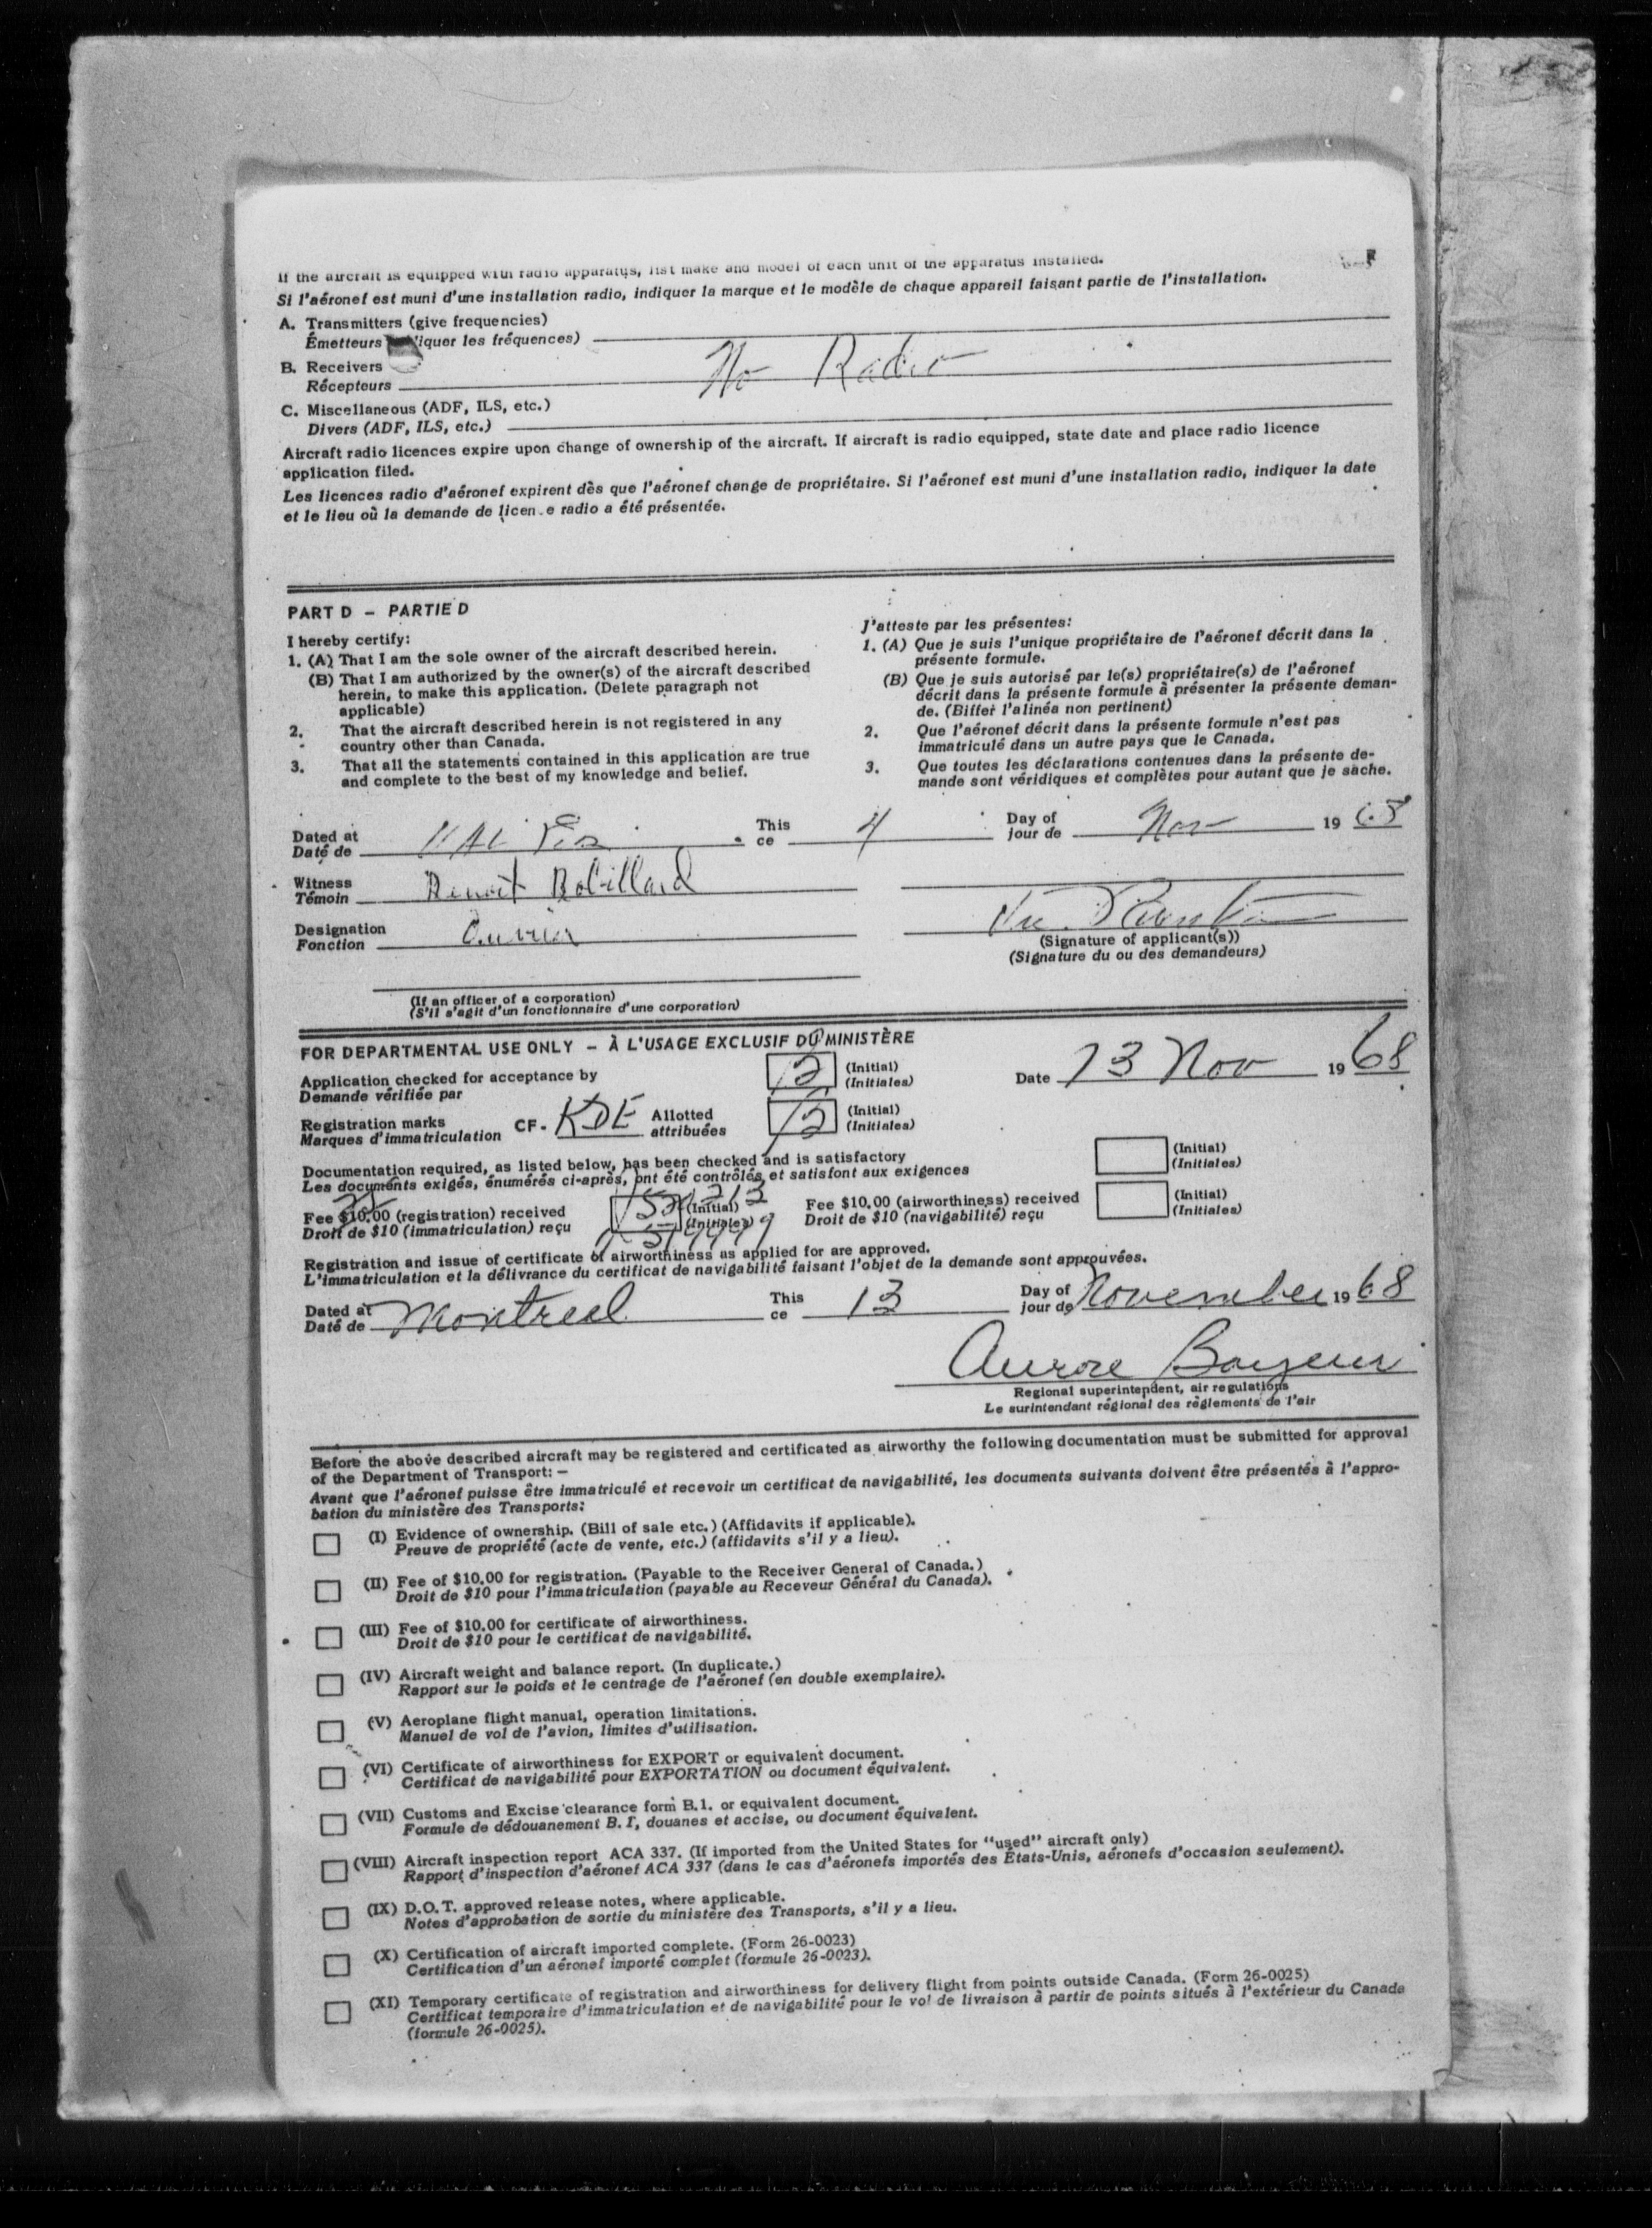 If the aircraft is equipped with radio apparatus, list make and model of each unit of the apparatus installed.
Si l'aéronef est muni d'une installation radio, indiquer la marque et le modèle de chaque appareil faisant partie de l'installation.
A. Transmitters (give frequencies)
Émetteurs liquer les fréquences)
B. Receivers
Récepteurs No Radio
C. Miscellaneous (ADF, ILS, etc.)
Divers (ADF, ILS, etc.)
Aircraft radio licences expire upon change of ownership of the aircraft. If aircraft is radio equipped, state date and place radio licence
application filed.
Les licences radio d'aéronef expirent dès que l'aéronef change de propriétaire. Si l'aéronef est muni d'une installation radio, indiquer la date
et le lieu où la demande de licen e radio a été présentée.
PART D – PARTIE D
I hereby certify:
1. (A) That I am the sole owner of the aircraft described herein.
(B) That I am authorized by the owner(s) of the aircraft described
herein, to make this application. (Delete paragraph not
applicable)
2. That the aircraft described herein is not registered in any
country other than Canada.
3. That all the statements contained in this application are true
and complete to the best of my knowledge and belief.
J'atteste par les présentes:
1. (A) Que je suis l'unique propriétaire de l'aéronef décrit dans la
présente formule.
(B) Que je suis autorisé par le(s) propriétaire(s) de l'aéronef
décrit dans la présente formule à présenter la présente deman-
de. (Biffer l'alinéa non pertinent)
2. Que l'aéronef décrit dans la présente formule n'est pas
immatriculé dans un autre pays que le Canada.
3. Que toutes les déclarations contenues dans la présente de-
mande sont véridiques et complètes pour autant que je sache.
Dated at This 4 Day of Nov 19 68
Daté de ce jour de
Witness Benoit Robillard
Témoin
Designation
Fonction
(Signature of applicant(s))
(Signature du ou des demandeurs)
(If an officer of a corporation)
(S'il s'agit d'un fonctionnaire d'une corporation)
FOR DEPARTMENTAL USE ONLY – À L'USAGE EXCLUSIF DU MINISTÈRE
Application checked for acceptance by (Initial) Date 13 Nov 1968
Demande vérifiée par (Initiales)
Registration marks CF- KDE Allotted (Initial)
Marques d'immatriculation attribuées (Initiales)
Documentation required, as listed below, has been checked and is satisfactory (Initial)
Les documents exigés, énumérés ci-après, ont été contrôlés et satisfont aux exigences (Initiales)
Fee $10.00 (registration) received (Initial) Fee $10.00 (airworthiness) received (Initial)
Droit de $10 (immatriculation) reçu (Initiales) Droit de $10 (navigabilité) reçu (Initiales)
Registration and issue of certificate of airworthiness as applied for are approved.
L'immatriculation et la délivrance du certificat de navigabilité faisant l'objet de la demande sont approuvées.
Dated at Montreal This 13 Day of November 1968
Daté de ce jour de
Aurore
Regional superintendent, air regulations
Le surintendant régional des règlements de l'air
Before the above described aircraft may be registered and certificated as airworthy the following documentation must be submitted for approval
of the Department of Transport: –
Avant que l'aéronef puisse être immatriculé et recevoir un certificat de navigabilité, les documents suivants doivent être présentés à l'appro-
bation du ministère des Transports:
(I) Evidence of ownership. (Bill of sale etc.) (Affidavits if applicable).
Preuve de propriété (acte de vente, etc.) (affidavits s'il y a lieu).
(II) Fee of $10.00 for registration. (Payable to the Receiver General of Canada.)
Droit de $10 pour l'immatriculation (payable au Receveur Général du Canada).
(III) Fee of $10.00 for certificate of airworthiness.
Droit de $10 pour le certificat de navigabilité.
(IV) Aircraft weight and balance report. (In duplicate.)
Rapport sur le poids et le centrage de l'aéronef (en double exemplaire).
(V) Aeroplane flight manual, operation limitations.
Manuel de vol de l'avion, limites d'utilisation.
(VI) Certificate of airworthiness for EXPORT or equivalent document.
Certificat de navigabilité pour EXPORTATION ou document équivalent.
(VII) Customs and Excise clearance form B.1. or equivalent document.
Formule de dédouanement B.1, douanes et accise, ou document équivalent.
(VIII) Aircraft inspection report ACA 337. (If imported from the United States for "used" aircraft only)
Rapport d'inspection d'aéronef ACA 337 (dans le cas d'aéronefs importés des États-Unis, aéronefs d'occasion seulement).
(IX) D.O.T. approved release notes, where applicable.
Notes d'approbation de sortie du ministère des Transports, s'il y a lieu.
(X) Certification of aircraft imported complete. (Form 26-0023)
Certification d'un aéronef importé complet (formule 26-0023).
(XI) Temporary certificate of registration and airworthiness for delivery flight from points outside Canada. (Form 26-0025)
Certificat temporaire d'immatriculation et de navigabilité pour le vol de livraison à partir de points situés à l'extérieur du Canada
(formule 26-0025).